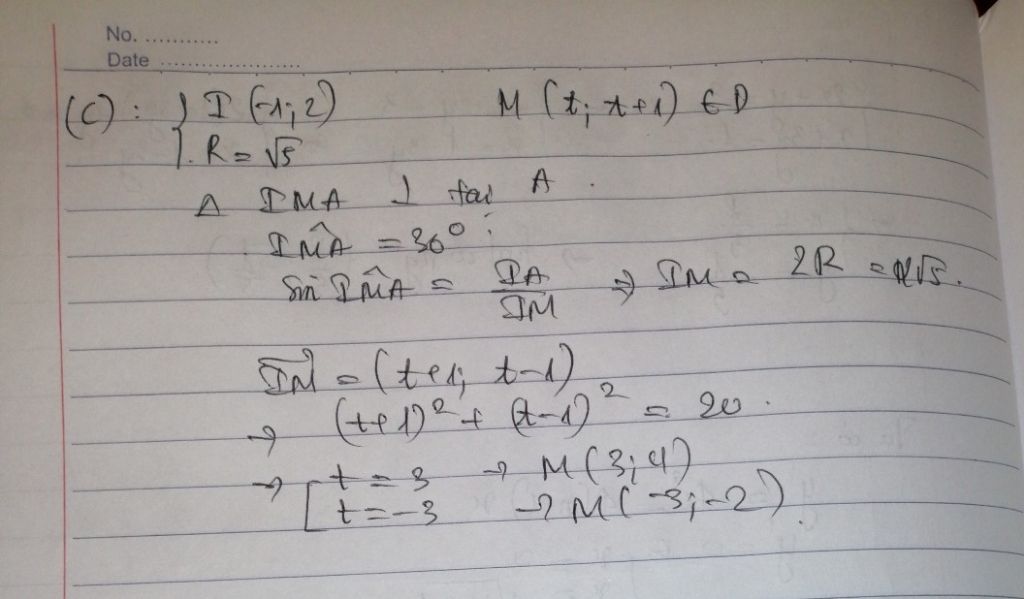 No. ...........
Date .....................
(C) : { I (-1; 2)      M (t; t+1) ∈ D
R = √5
Δ IMA ⊥ tại A .
IM̂A = 30° :
Sin IM̂A = IA/IM ⇒ IM = 2R = 2√5.
IM⃗ = (t+1; t-1)
→ (t+1)² + (t-1)² = 20 .
→ [ t = 3 → M (3; 4)
t = -3 → M (-3; -2) .